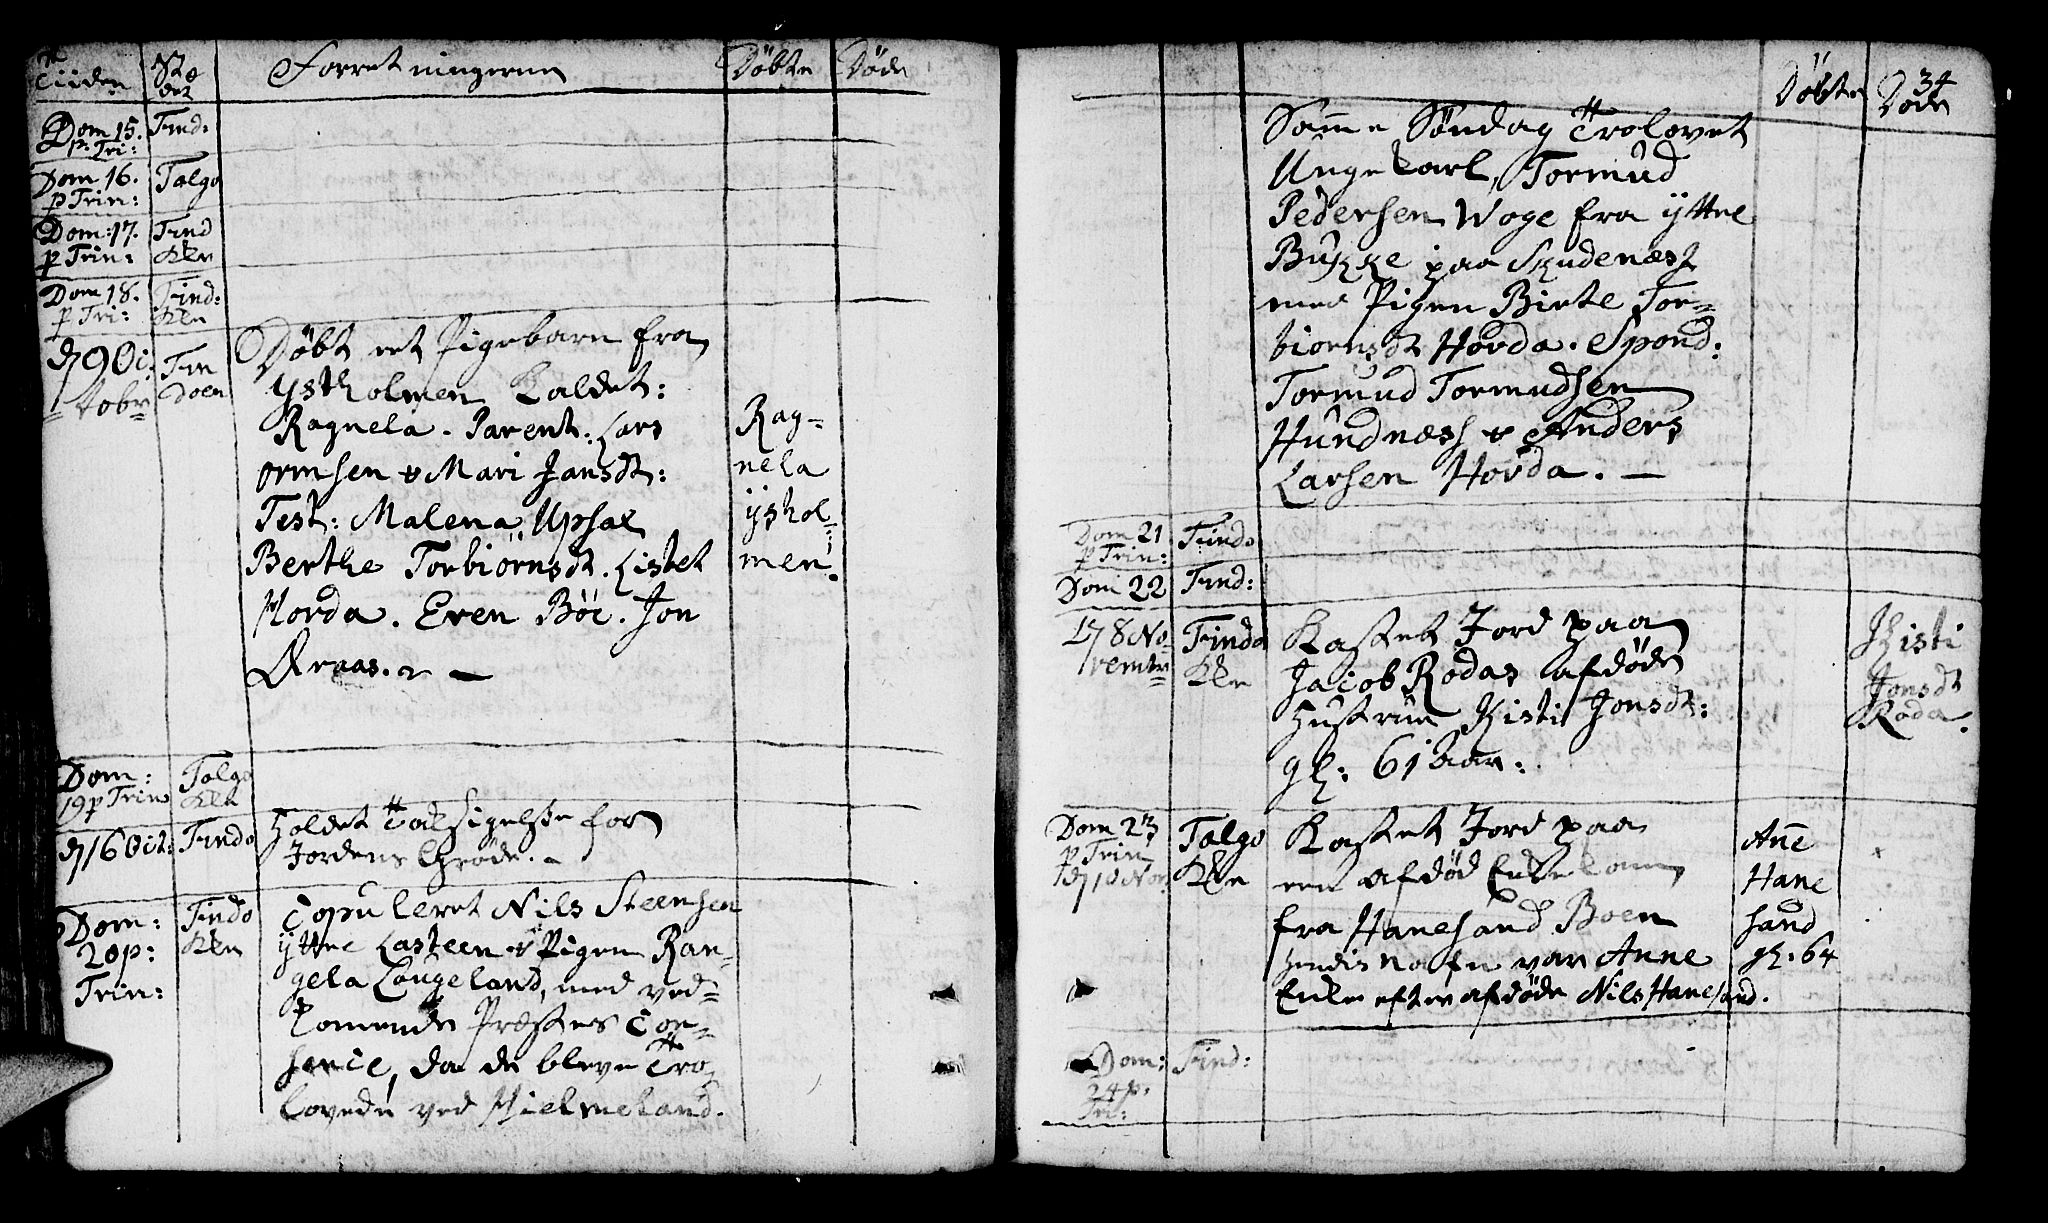 Tiiden Stædet Forretningerne Döbte Döde
Dom 15. p: Tri: Find:
Dom 16. p Trin: Talgo
Dom: 17. p Trin: Find Kle
Dom 18. p Tri: Find: Kle
d 9 Octobr Findoen
Döbt et Pigebarn fra
Ystholmen kaldet:
Ragnela. Parent: Lars
Ormsen & Mari Jansdt:
Test: Malena Upsal
Berthe Torbiörnsdt. Listet
Horda. Even Böe. Jon
Aaraas.
Ragnela ysholmen.
Dom: 19 p Trin Talgo Kle
d 16 Oct: Findo
Holdet Taksigelse for
Jordens Gröde. -
Dom: 20 p: Trin: Findo Kle
Copuleret Nils Steensen
yttre Lasteen & Pigen Ran-
gela Langeland, med ved-
kommende Præstes Con-
sence, da de bleve Tro-
lovede ved Hielmeland.
34
Döbte Döde
Samme Söndag Trolovet
Ungekarl, Tormud
Pedersen Woge fra yttre
Bukke paa Skudenæss
med Pigen Birte Tor-
biornsdt Horda. Spond:
Tormud Tormudsen
Hundnæss & Anders
Larsen Horda. -
Dom 21 p Trin: Findo
Dom 22 Find:
d 8 Novembr Findo Kle
Kastet Jord paa
Jacob Rodas afdöde
Hustrue Kisti Jonsdt:
gl: 61 Aar:
Kisti Jonsdt Roda.
Dom 23 p Trin Talgo Kle
Kastet Jord paa
en afdöd Enke
fra Hanesand Boen
hendis nafn var Anne
Enke efter afdöde Nils Hanesand.
Anne Hanesand gl: 64
Dom: 24 p: Tri: Find: